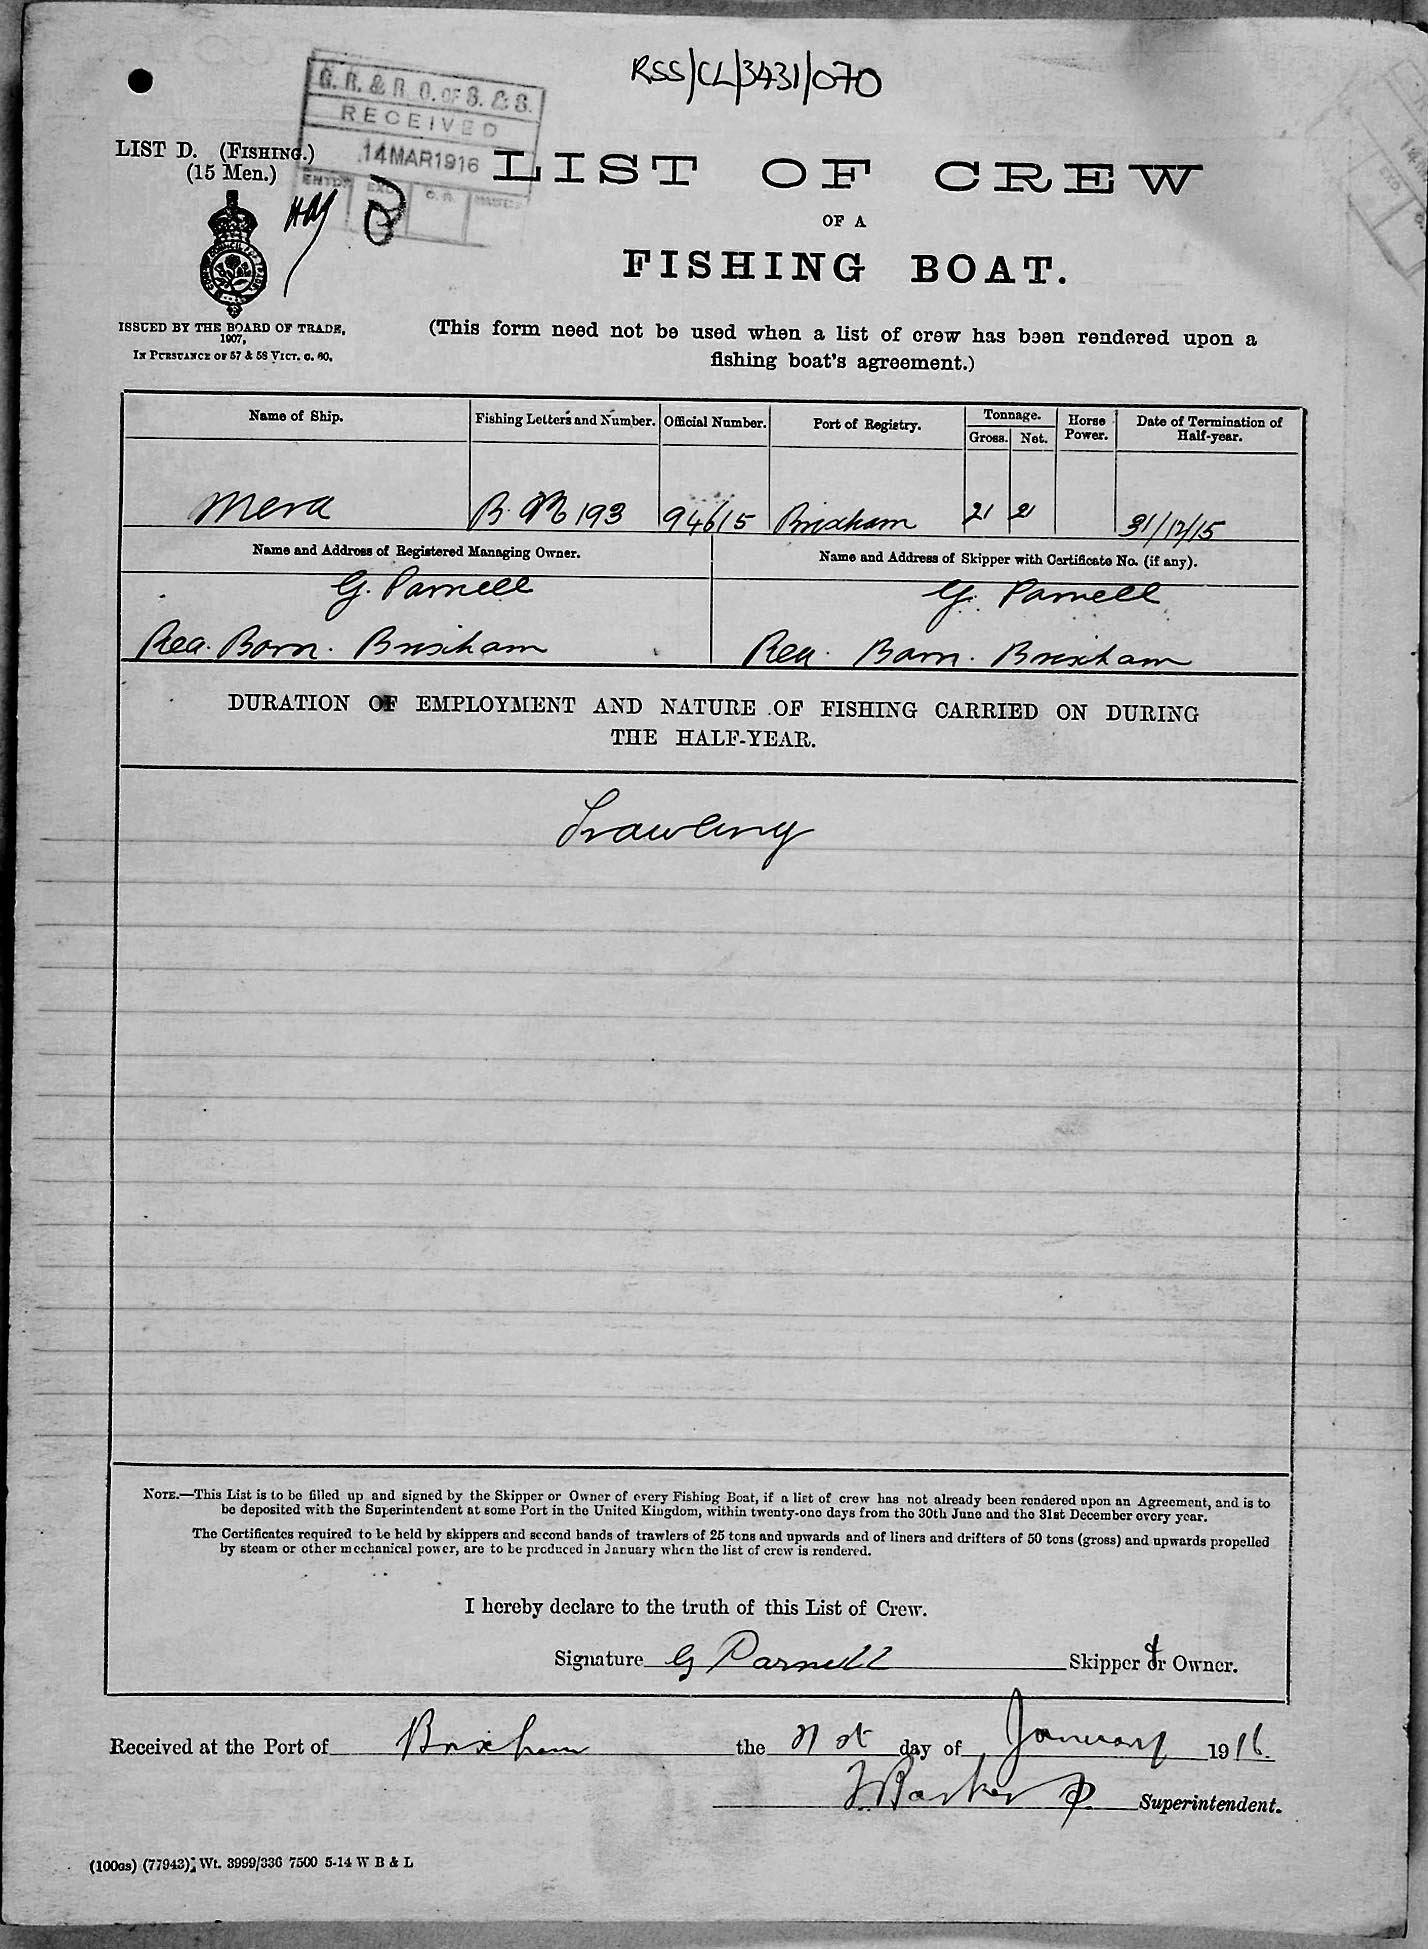 RSS/CL/3431/070
G. R. & R. O. OF S. & S.
RECEIVED
14 MAR 1916
LIST D. (FISHING.)
(15 Men.)
LIST OF CREW
OF A
FISHING BOAT.
ISSUED BY THE BOARD OF TRADE,
1907,
IN PURSUANCE OF 57 & 58 VICT. C. 60.
(This form need not be used when a list of crew has been rendered upon a
fishing boat's agreement.)
Name of Ship. Fishing Letters and Number. Official Number. Port of Registry. Tonnage. Horse Power. Date of Termination of Half-year.
Gross. Net.
Mera B. M 193 94615 Brixham 21 21 31/12/15
Name and Address of Registered Managing Owner. Name and Address of Skipper with Certificate No. (if any).
G. Parnell G. Parnell
Rea. Barn. Brixham Rea. Barn. Brixham
DURATION OF EMPLOYMENT AND NATURE OF FISHING CARRIED ON DURING
THE HALF-YEAR.
Trawling
NOTE.—This List is to be filled up and signed by the Skipper or Owner of every Fishing Boat, if a list of crew has not already been rendered upon an Agreement, and is to
be deposited with the Superintendent at some Port in the United Kingdom, within twenty-one days from the 30th June and the 31st December every year.
The Certificates required to be held by skippers and second hands of trawlers of 25 tons and upwards and of liners and drifters of 50 tons (gross) and upwards propelled
by steam or other mechanical power, are to be produced in January when the list of crew is rendered.
I hereby declare to the truth of this List of Crew.
Signature G Parnell Skipper & or Owner.
Received at the Port of Brixham the 21st day of January 1916.
Superintendent.
(100as) (77943) Wt. 3999/336 7500 5-14 W B & L